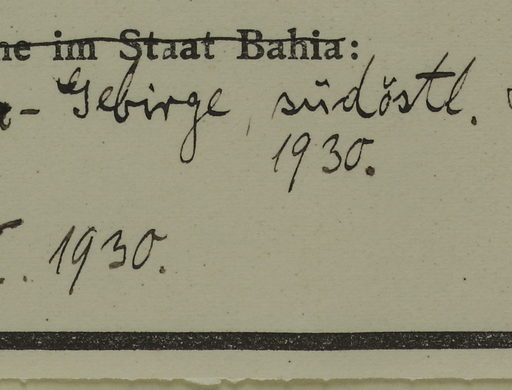 ne im Staat Bahia:
- Gebirge, südöstl.
1930.
. 1930.